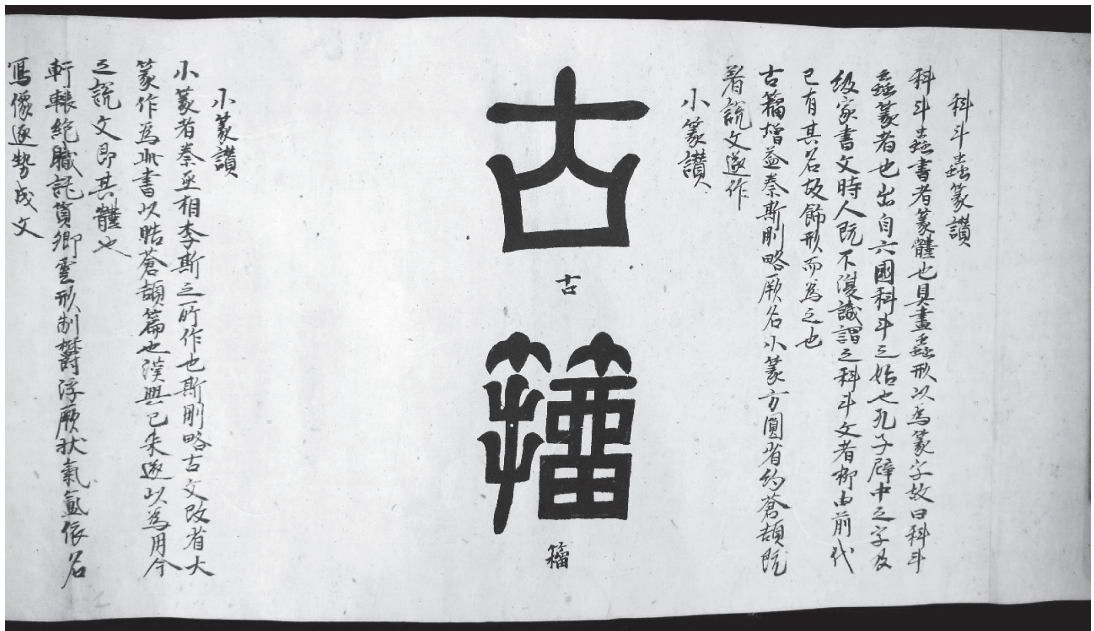 科斗虫篆讃
科斗虫書者篆體也具畫虫形以為篆字故曰科斗
虫篆者也出自六國科斗之始也孔子壁中之字及
級家書文時人既不復識謂之科斗文者抑由前代
已有其名故飾形而為之也
古籀增益秦斯刪略厥名小篆方圓省約蒼頡既
著說文遂作
小篆讃
古
籀
古
籀
小篆讃
小篆者秦丞相李斯之所作也斯刪略古文改省大
篆作為此書以 蒼頡篇也漢興已来遂以為用今
之說文即其體也
軒轅絶職託質卿雲形制欝浮厥状氣氳依名
寫像逐勢成文